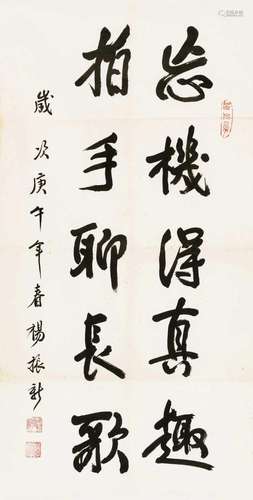 忘機得真趣
拍手聊長歌
歲次庚午年春楊振新